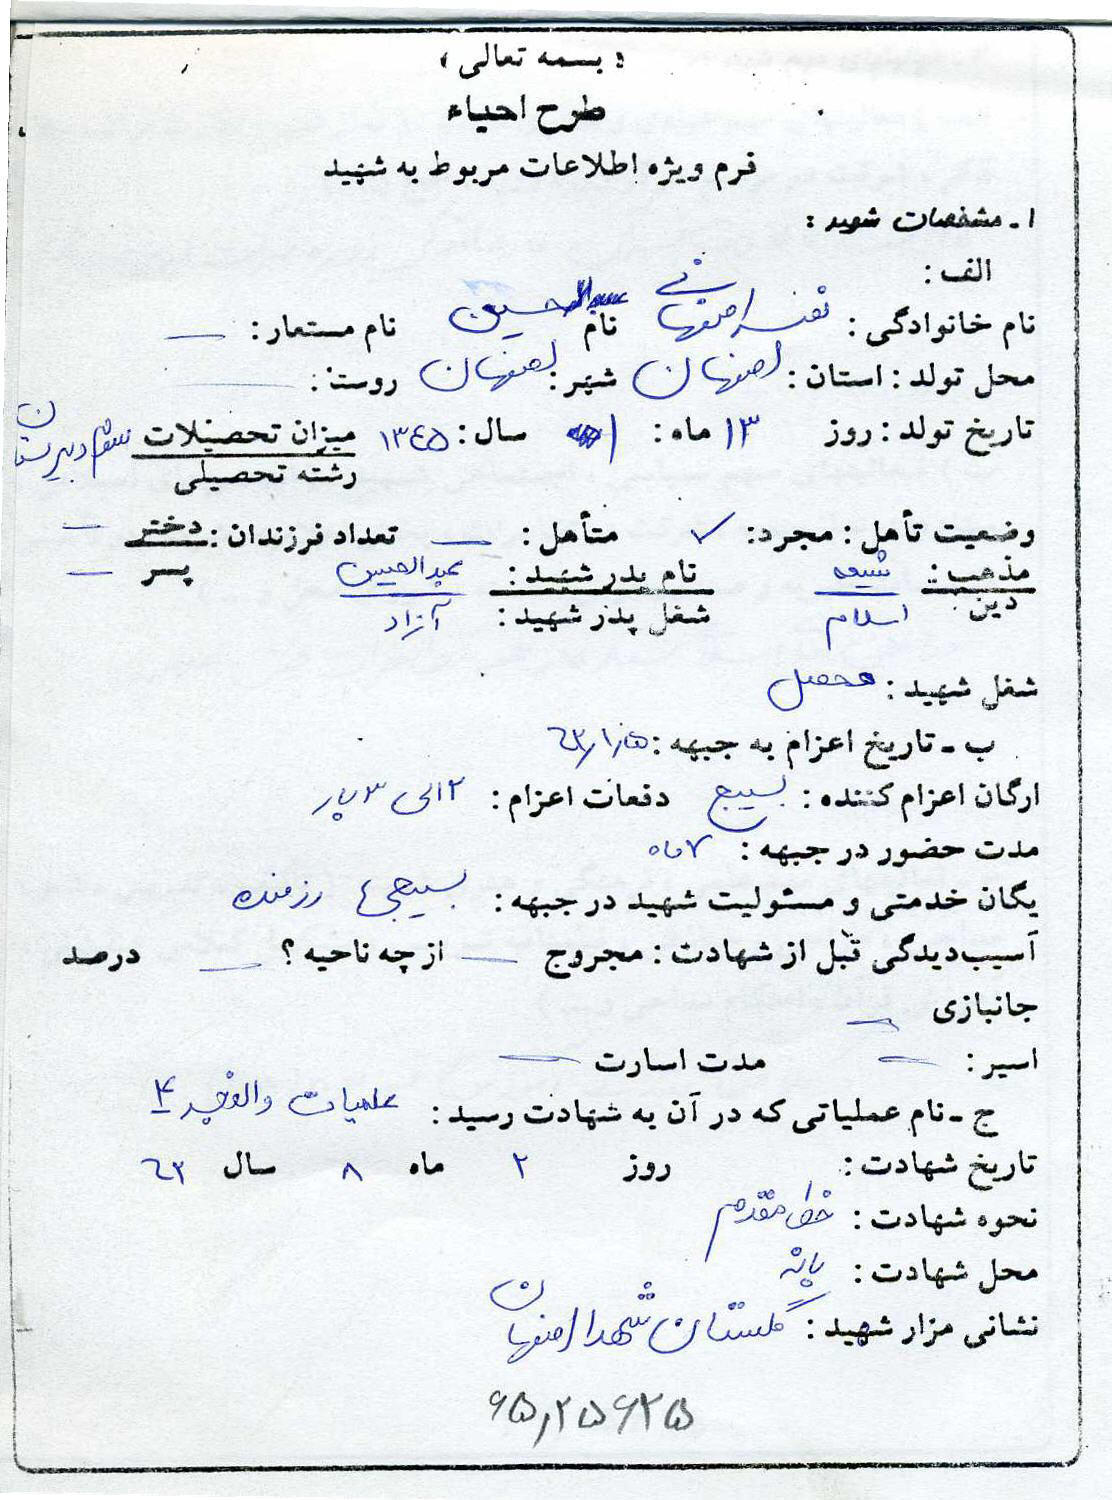 « بسمه تعالی »
طرح احیاء
فرم ویژه اطلاعات مربوط به شهید
۱ـ مشخصات شهید :
الف :
نام خانوادگی : اصفهانی نام حسین نام مستعار : —
محل تولد : استان : اصفهان شهر : اصفهان روستا : —
تاریخ تولد : روز ۱۳ ماه : ۱ سال : ۱۳۴۵ میزان تحصیلات دبیرستان
رشته تحصیلی
وضعیت تأهل : مجرد : ✓ متأهل : — تعداد فرزندان : دختر —
مذهب : شیعه نام پدر شهید : عبدالحسین پسر —
دین اسلام شغل پدر شهید : آزاد
شغل شهید : محصل
ب ـ تاریخ اعزام به جبهه :
ارگان اعزام کننده : بسیج دفعات اعزام : ۲ الی ۳ بار
مدت حضور در جبهه : ۷ ماه
یگان خدمتی و مسئولیت شهید در جبهه : بسیجی رزمنده
آسیب‌دیدگی قبل از شهادت : مجروح — از چه ناحیه ؟ — درصد
جانبازی —
اسیر : — مدت اسارت —
ج ـ نام عملیاتی که در آن به شهادت رسید : عملیات والفجر ۴
تاریخ شهادت : روز ۲ ماه ۸ سال ۶۲
نحوه شهادت : خط مقدم
محل شهادت : بانه
نشانی مزار شهید : گلستان شهدا اصفهان
۶۵,۲۵۶۲۵